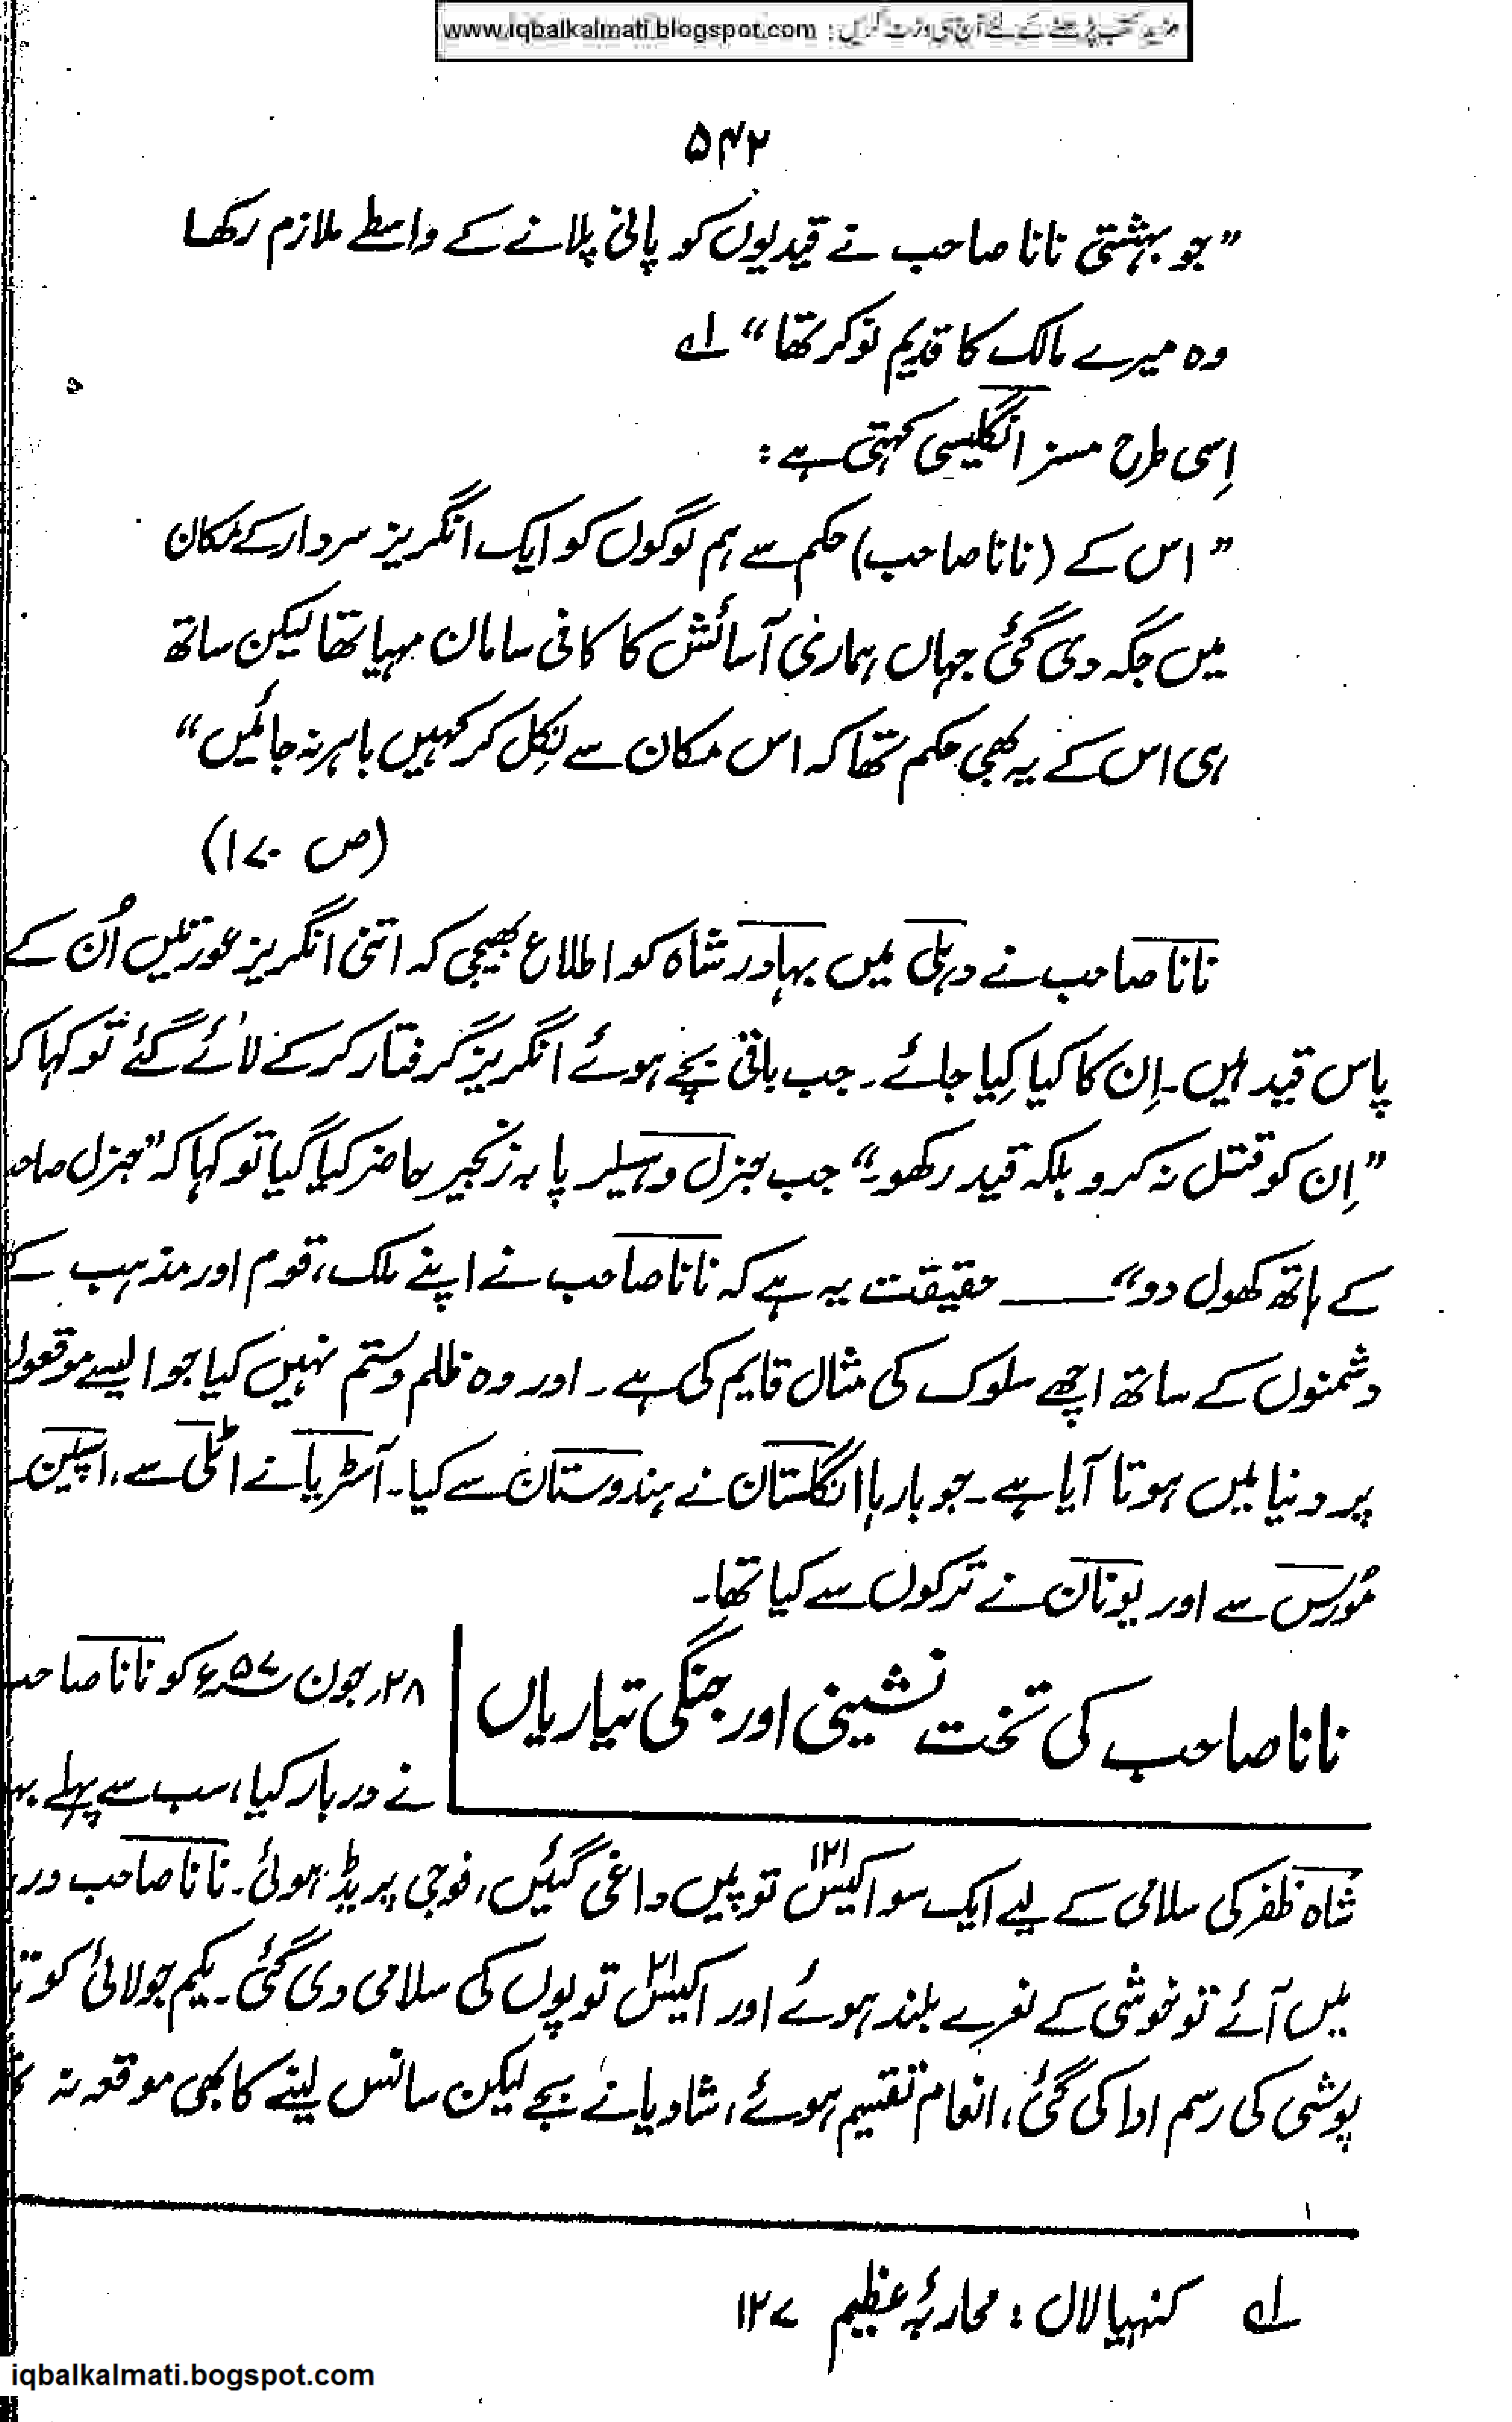 مزید کتب پڑھنے کے لئے آج ہی وزٹ کریں : www.iqbalkalmati.blogspot.com
۵۴۲
”جو بہشتی نانا صاحب نے قیدیوں کو پانی پلانے کے واسطے ملازم رکھا
وہ میرے مالک کا قدیم نوکر تھا“ لہ
اِسی طرح مسز انگلیسی کہتی ہے:
”اس کے (نانا صاحب) حکم سے ہم لوگوں کو ایک انگریز سردار کے مکان
میں جگہ دی گئی جہاں ہماری آسائش کا کافی سامان مہیا تھا لیکن ساتھ
ہی اس کے یہ بھی حکم تھا کہ اس مکان سے نِکل کر کہیں باہر نہ جائیں“
(ص ۱۷۰)
نانا صاحب نے دہلی میں بہادر شاہ کو اطلاع بھیجی کہ اتنی انگریز عورتیں اُن کے
پاس قید ہیں۔ اِن کا کیا کِیا جائے۔ جب باقی بچے ہوئے انگریز گرفتار کر کے لائے گئے تو کہا کہ
”اِن کو قتل نہ کرو بلکہ قید رکھو۔“ جب جنرل وہیلر پا بہ زنجیر حاضر کیا گیا تو کہا کہ ”جنرل صاحب
کے ہاتھ کھول دو“ ــــــ حقیقت یہ ہے کہ نانا صاحب نے اپنے ملک، قوم اور مذہب کے
دشمنوں کے ساتھ اچھے سلوک کی مثال قایم کی ہے۔ اور وہ ظلم و ستم نہیں کیا جو ایسے موقعوں
پر دنیا میں ہوتا آیا ہے۔ جو بارہا انگلستان نے ہندوستان سے کیا۔ آسٹریا نے اٹلی سے، اسپین
مُورس سے اور یونان نے ترکوں سے کیا تھا۔
نانا صاحب کی تخت نشینی اور جنگی تیاریاں
۲۸ر جون ۵۷ءکو نانا صاحب
نے دربار کیا، سب سے پہلے
شاہ ظفر کی سلامی کے لیے ایک سو اکیس ۱۲۱ توپیں داغی گئیں، فوجی پریڈ ہوئی۔ نانا صاحب
میں آئے تو خوشی کے نعرے بلند ہوئے اور اکیس ۲۱ توپوں کی سلامی دی گئی۔ یکم جولائی کو
پوشی کی رسم ادا کی گئی، انعام تقسیم ہوئے، شادیانے بجے لیکن سانس لینے کا بھی موقعہ نہ
لہ کنہیا لال : محاربۂ عظیم ۱۲۷
iqbalkalmati.bogspot.com